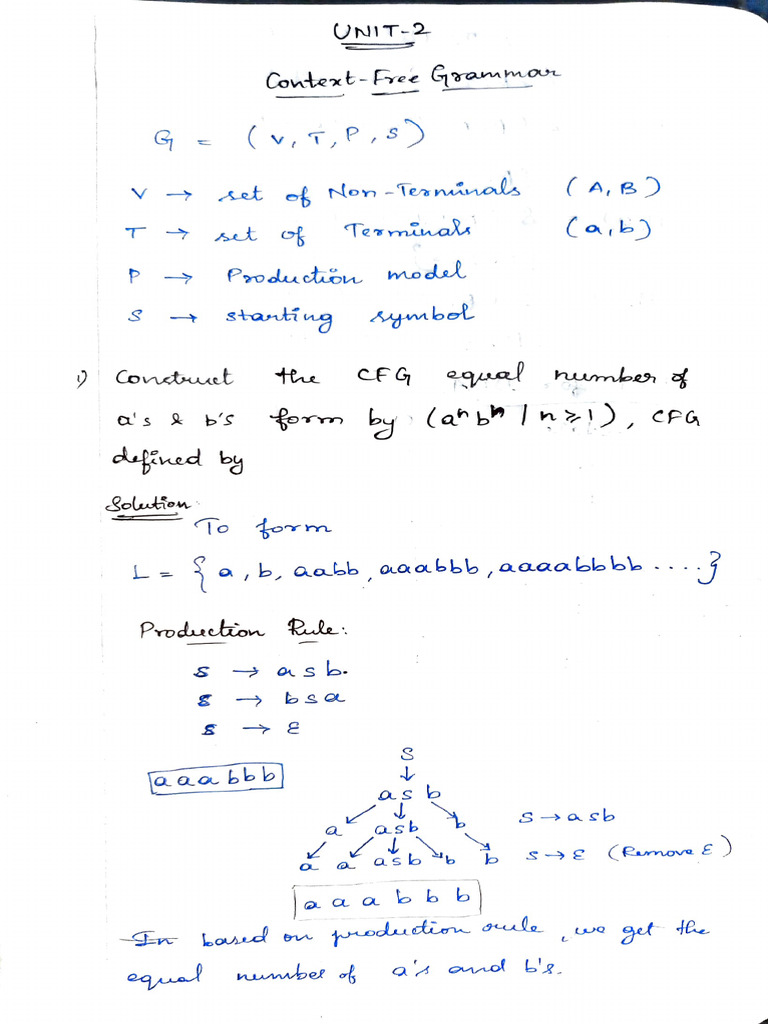 UNIT-2
Context-Free Grammar
G = (V, T, P, S)
V → set of Non-Terminals (A, B)
T → set of Terminals (a, b)
P → Production model
S → starting symbol
1) Construct the CFG equal number of
a's & b's form by (aⁿbⁿ / n ≥ 1), CFG
defined by
Solution:
To form
L = { a, b, aabb, aaabbb, aaaabbbb ....}
Production Rule:
S → a s b.
S → b s a
S → ε
S
aaabbb
↓
a s b
a asb b S → asb
a a asb b b S → ε (Remove ε)
a a a b b b
In based on production rule, we get the
equal number of a's and b's.